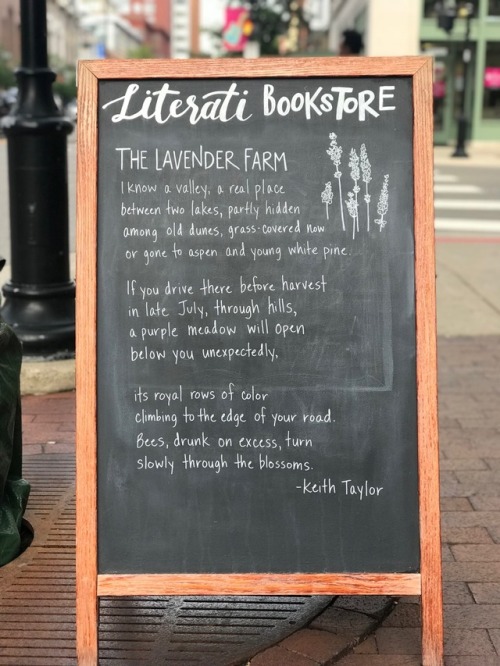 Literati BOOKSTORE
THE LAVENDER FARM
I know a valley, a real place
between two lakes, partly hidden
among old dunes, grass-covered now
or gone to aspen and young white pine.
If you drive there before harvest
in late July, through hills,
a purple meadow will open
below you unexpectedly,
its royal rows of color
climbing to the edge of your road.
Bees, drunk on excess, turn
slowly through the blossoms.
-Keith Taylor